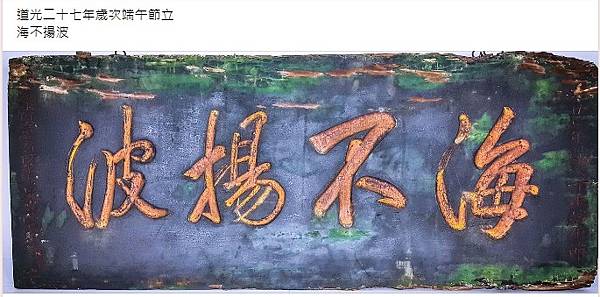 道光二十七年歲次端午節立
海不揚波
海不揚波